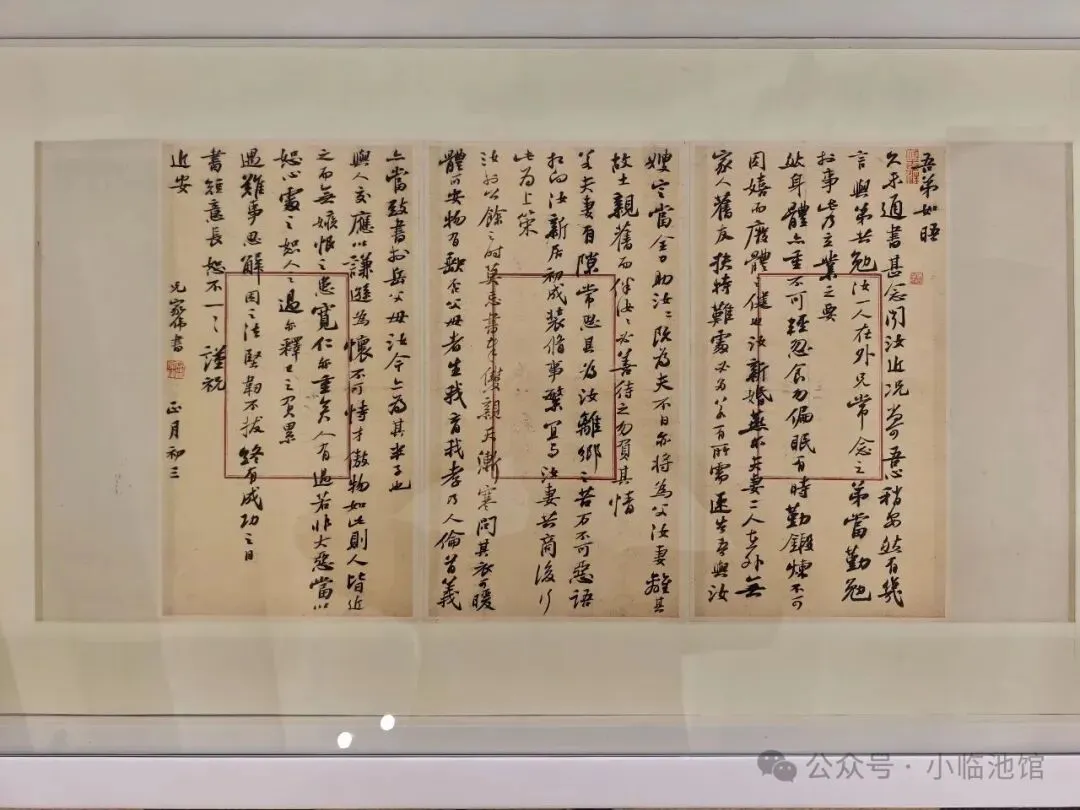 吾弟如晤
久未通书甚念闻汝近况尝悉稍安然有幾
言與弟共勉汝一人在外兄常念之弟當勤勉
於事此乃立業之要
然身體亦重不可輕忽食勿偏眠有時勤鍛煉不可
因嬉而廢體之健也汝新婚燕尔夫妻二人在外無
家人舊友扶持難處必多若有所需速告吾與汝
嫂定當全力助汝汝既為夫不日亦將為父汝妻離其
故土親舊而伴汝汝必善待之勿負其情
若夫妻有隙常思其為汝離鄉之苦万不可惡語
相向汝新居初成装脩事繁宜与汝妻共商後行
此為上策
汝於公餘之时莫忘書本雙親天漸寒問其衣可暖
體可安物有缺否父母者生我育我孝乃人倫首義
亦當致書於岳父母汝今亦為其半子也
與人交應以謙遜為懷不可恃才傲物如此則人皆近
之而無嫉恨之患寬仁亦重矣人有過若非大惡當以
恕心處之恕人之過亦釋己之負累
遇難事思解困之法堅韌不拔終有成功之日
書短意長恕不一一謹祝
近安
兄 書 正月初三
公众号·小临池馆